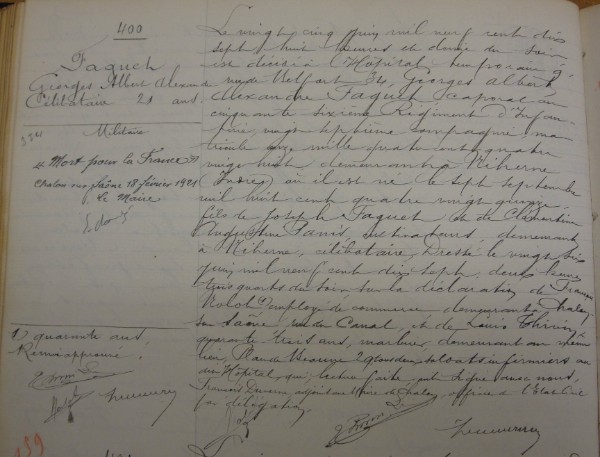 400
Faguet
Georges Albert Alexandre
Célibataire 21 ans
Militaire
"Mort pour la France"
Chalon sur Saône 18 février 1921
Le Maire
1) quarante ans
approuvé
Le vingt cinq juin mil neuf cent dix
sept huit heures et demie du soir
est décédé à l'Hôpital temporaire
rue de Belfort 34, Georges Albert
Alexandre Faguet caporal au
cinquante sixième Régiment d'Infan-
terie, vingt septième compagnie, ma-
tricule mille quatre cent quatre
vingt huit demeurant à Niherne
(Indre) où il est né le sept septembre
mil huit cent quatre vingt quinze,
fils de Joseph Faguet et de Clémentine
Joséphine Panis, cultivateurs, demeurant
à Niherne, célibataire. Dressé le vingt six
juin mil neuf cent dix sept, deux heures
trois quarts du soir, sur la déclaration de François
employé de commerce demeurant à Chalon
sur Saône, rue du Canal, et de Louis
quarante trois ans, demeurant au même
lieu, Place de Beaune 2 soldats infirmiers au
dit Hôpital, qui, lecture faite, ont signé avec nous,
François adjoint au Maire de Chalon, officier de l'Etat Civil
par délégation
139